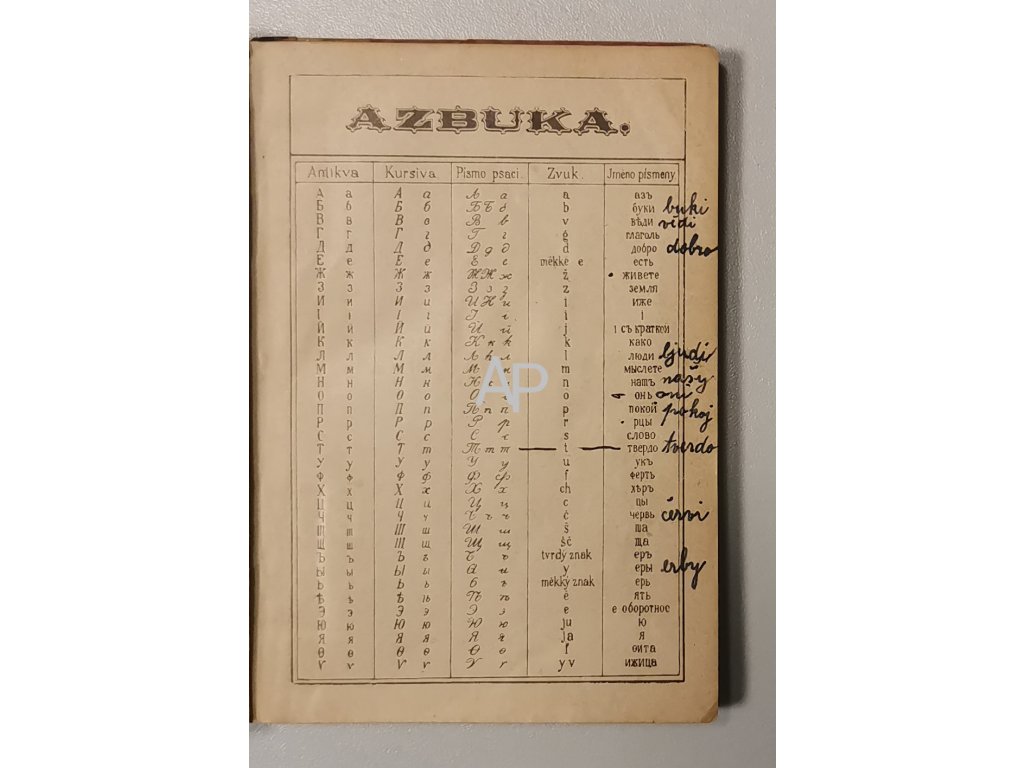 AZBUKA.
Antikva Kursiva Písmo psací. Zvuk. Jmeno písmeny
А а А а А а a азъ
Б б Б б Б Б б b буки buki
В в В в В в v вѣди vidi
Г г Г г Г г g глаголь
Д д Д д Д д д d добро dobro
Е е Е е Е е měkké e есть
Ж ж Ж ж Ж Ж ж ž живете
З з З з З з з z земля
И и И и И И и i иже
І і І і І і i і
Й й Й й Й й j і съ краткой
К к К к К к к k како
Л л Л л Л л л l люди ljudji
М м М м М м m мыслете
Н н Н н Н н n нашъ našy
О о О о О o онъ oni
П п П п П п п p покой pokoj
Р р Р р Р р r рцы
С с С с С с s слово
Т т Т т Т т т t твердо tverdo
У у У у У у u укъ
Ф ф Ф ф Ф ф f ферть
Х х Х х Х х ch хѣръ
Ц ц Ц ц Ц ц c цы
Ч ч Ч ч Ч ч ч č червь červi
Ш ш Ш ш Ш ш š ша
Щ щ Щ щ Щ щ šč ща
Ъ ъ Ъ ъ Ъ ъ tvrdý znak еръ
Ы ы Ы ы ы y еры erby
Ь ь Ь ь ь měkký znak ерь
Ѣ ѣ Ѣ ѣ Ѣ ѣ ě ять
Э э Э э Э э e е оборотное
Ю ю Ю ю Ю ю ju ю
Я я Я я Я я ja я
Ѳ ѳ Ѳ ѳ Ѳ ѳ f ѳита
Ѵ ѵ Ѵ ѵ Ѵ ѵ y v ижица
AP